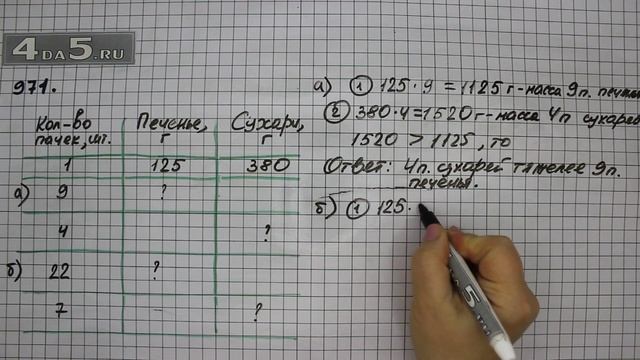 4DA5.RU
971.
Кол-во пачек, шт. Печенье, г Сухари, г
1 125 380
а) 9 ?
4 ?
б) 22 ?
7 — ?
а) ① 125 · 9 = 1125 г - масса 9п. печенья
② 380 · 4 = 1520 г - масса 4п сухарей
1520 > 1125, то
Ответ: 4п. сухарей тяжелее 9п.
печенья.
б) ① 125 ·
4DA5